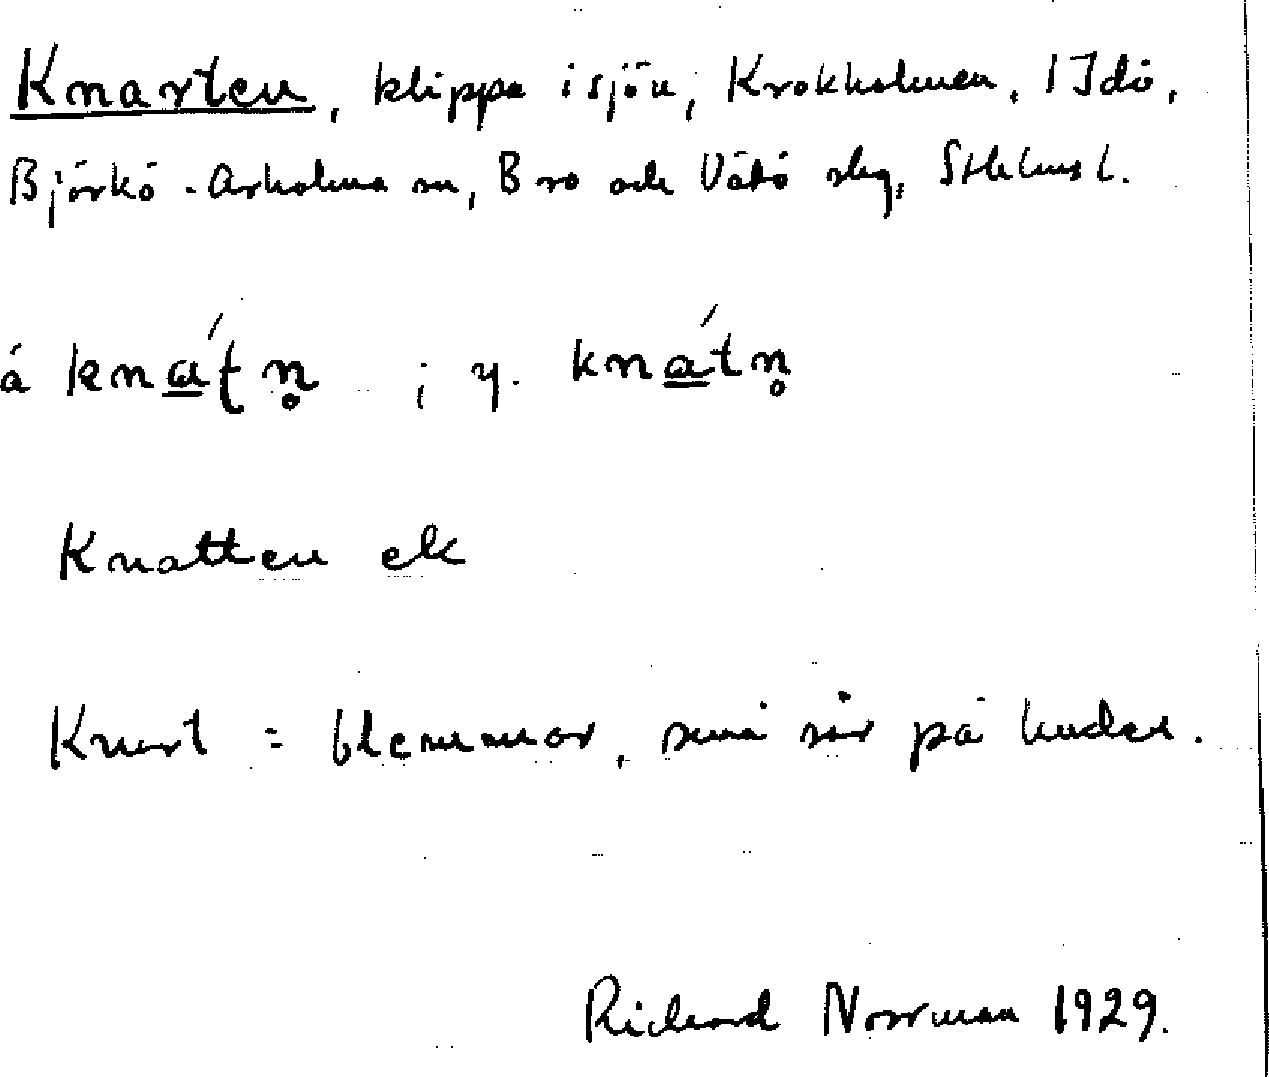 Knarten, klippa i sjön, Krokholmen, 1 Idö,
Björkö-Arholma sn, Bro och Vätö skg, Sthlms l.
å knát̲n̥ ; y. knátn̥
Knatten ek
Knart = blemmor, små sår på huden.
Richard Norrman 1929.